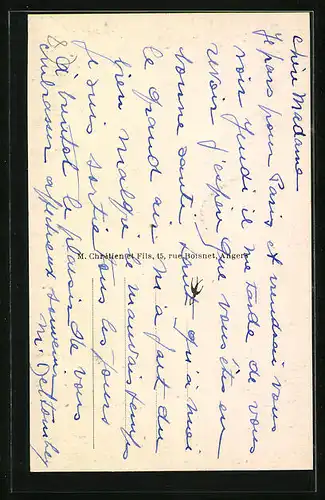 chère Madame
Je pars pour Paris et viendrai vous
voir Jeudi il me tarde de vous
revoir j'espère que vous êtes en
bonne santé. quant à moi
le grand air m'a fait du
bien malgré le mauvais temps
je suis sortie tous les jours
à bientôt le plaisir de vous
embrasser affectueux souvenirs
M.
M. Chrétien et Fils, 15, rue Boisnet, Angers